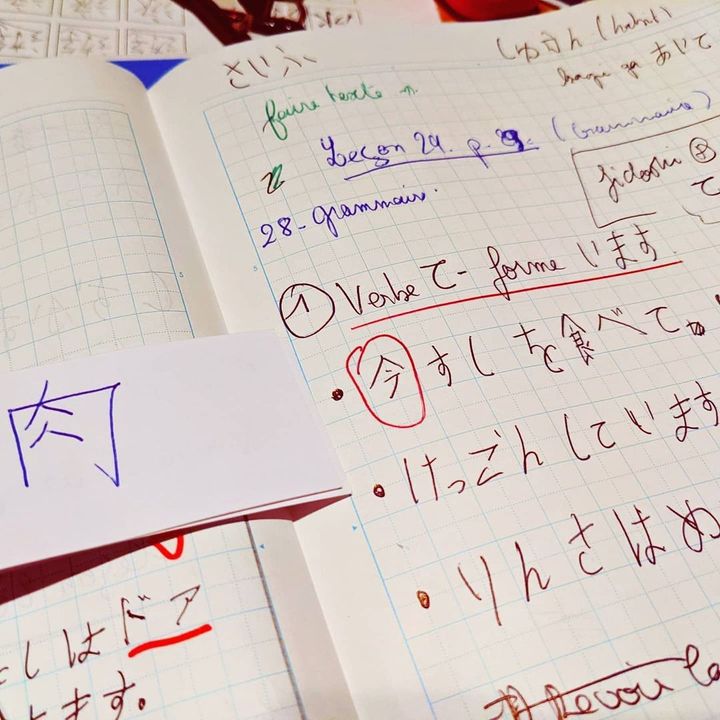 さいふ
しゅうかん (habit)
あいて
faire texte
Leçon 29. p. 29. (Grammaire)
Jidoshi
て
28- grammaire.
① Verbe て- forme います.
• 今すしを食べて
肉
• けっごんしています
• りんさはめ
しはドア
ます。
Revoir